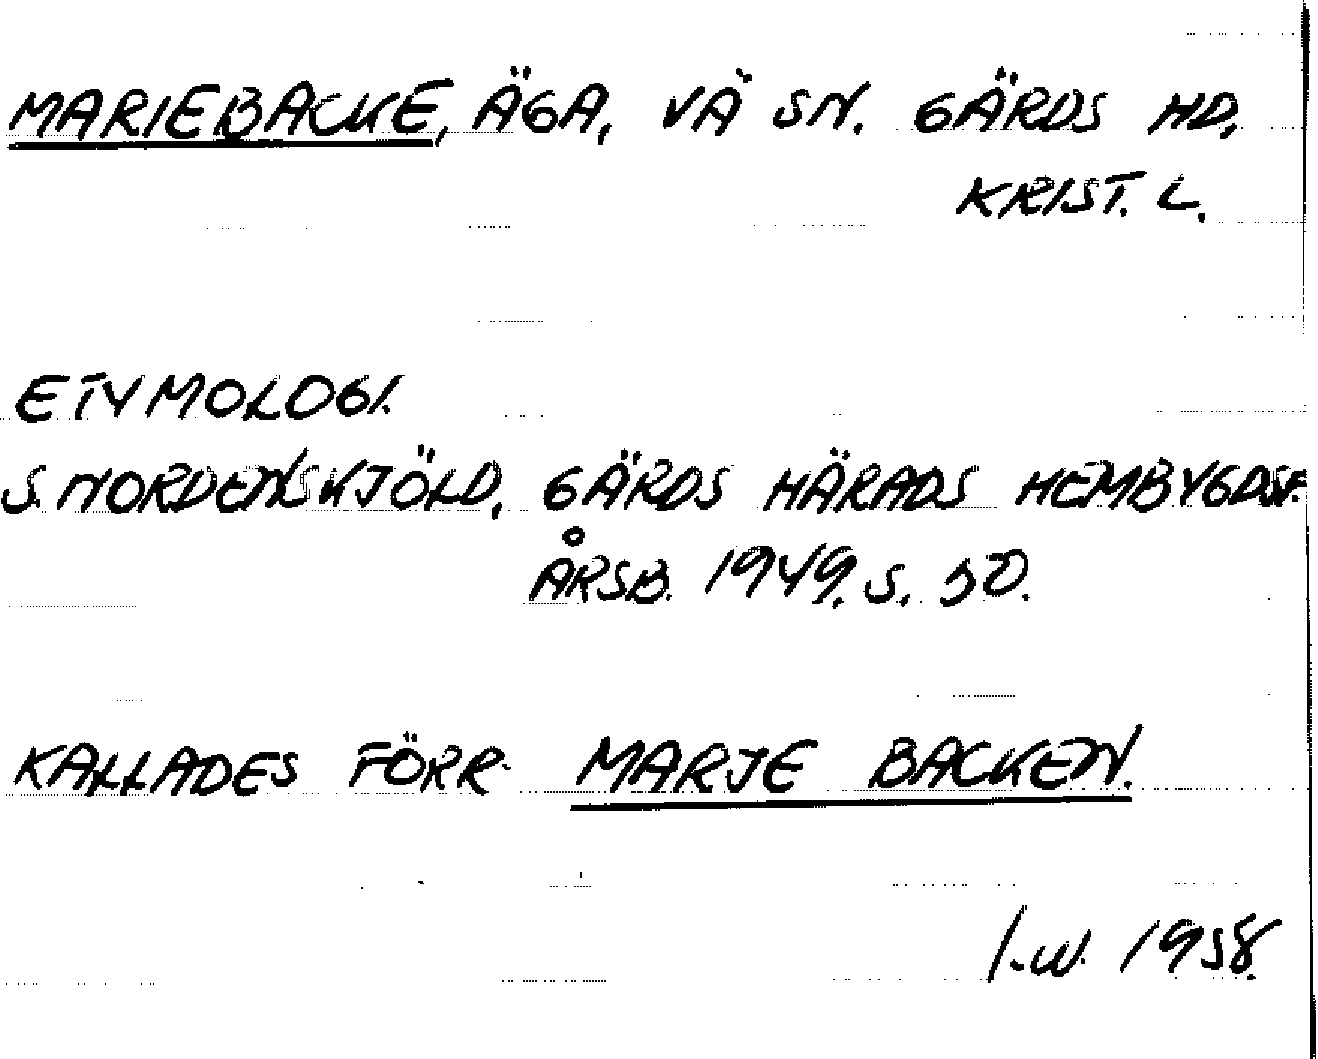 MARIEBACKE, ÄGA, VÄ SN. GÄRDS HD,
KRIST. L.
ETYMOLOGI.
S. NORDENSKJÖLD, GÄRDS HÄRADS HEMBYGDSF.
ÅRSB. 1949. S. 50.
KALLADES FÖRR MARJE BACKEN.
I.W. 1958.